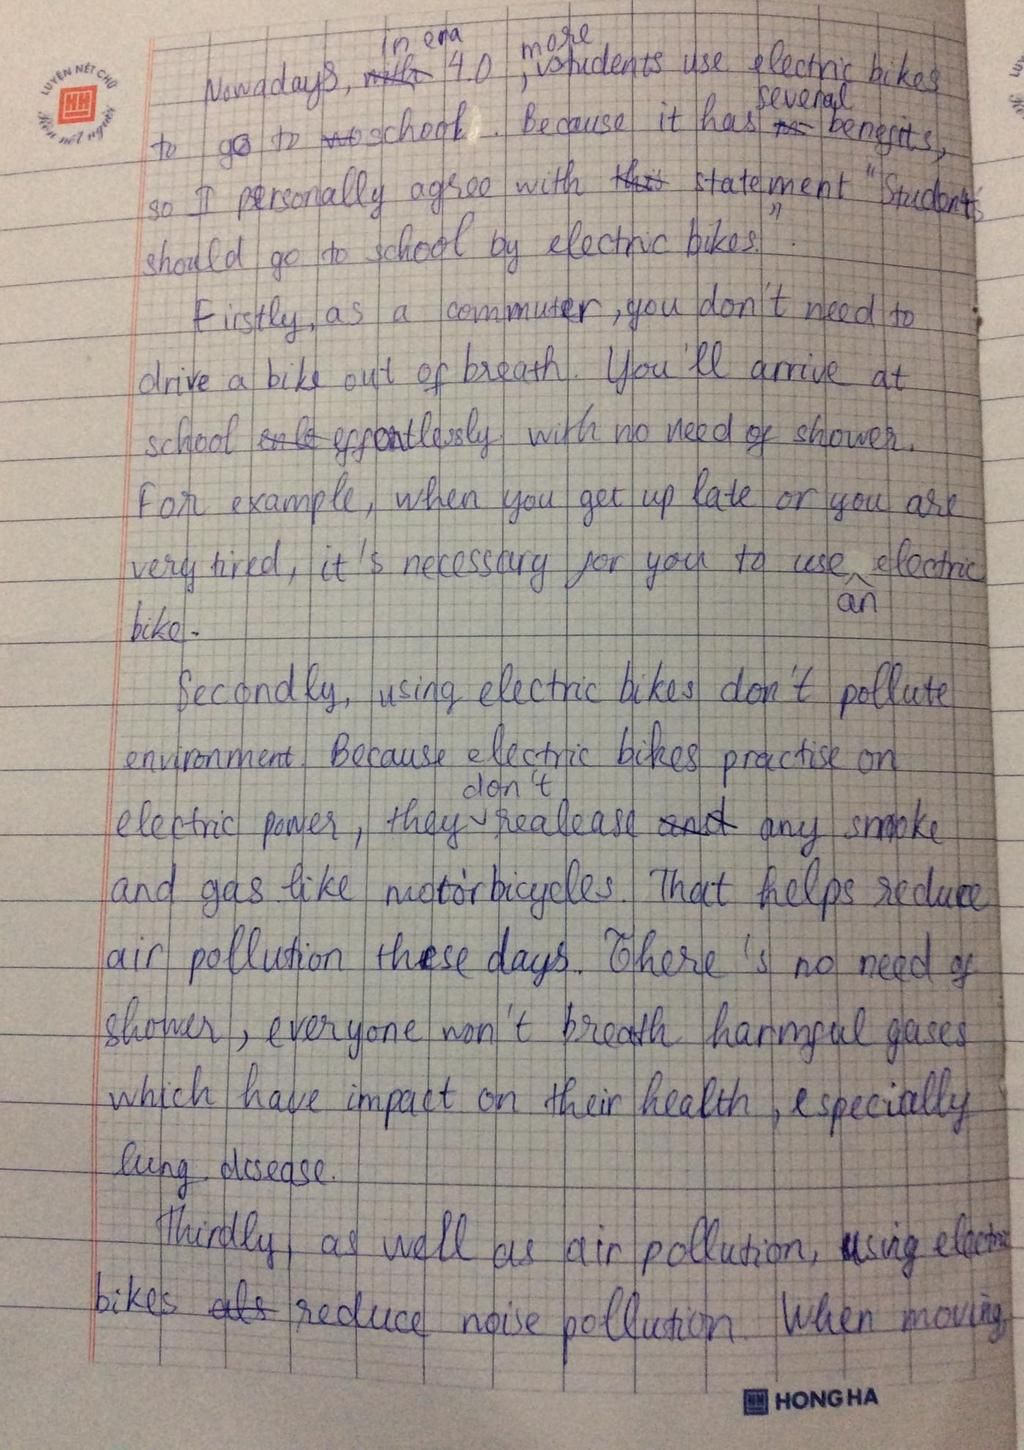 LUYỆN NÉT CHỮ
Nowadays, in era 4.0, more students use electric bikes
to go to school. Because it has several benefits,
so I personally agree with statement "Students
should go to school by electric bikes".
Firstly, as a commuter, you don't need to
drive a bike out of breath. You'll arrive at
school effortlessly with no need of shower.
For example, when you get up late or you are
very tired, it's necessary for you to use an electric
bike.
Secondly, using electric bikes don't pollute
environment. Because electric bikes practise on
electric power, they don't realease any smoke
and gas like motorbicycles. That helps reduce
air pollution these days. There's no need of
shower, everyone won't breath harmful gases
which have impact on their health, especially
lung disease.
Thirdly, as well as air pollution, using electric
bikes reduce noise pollution. When moving,
HONG HA